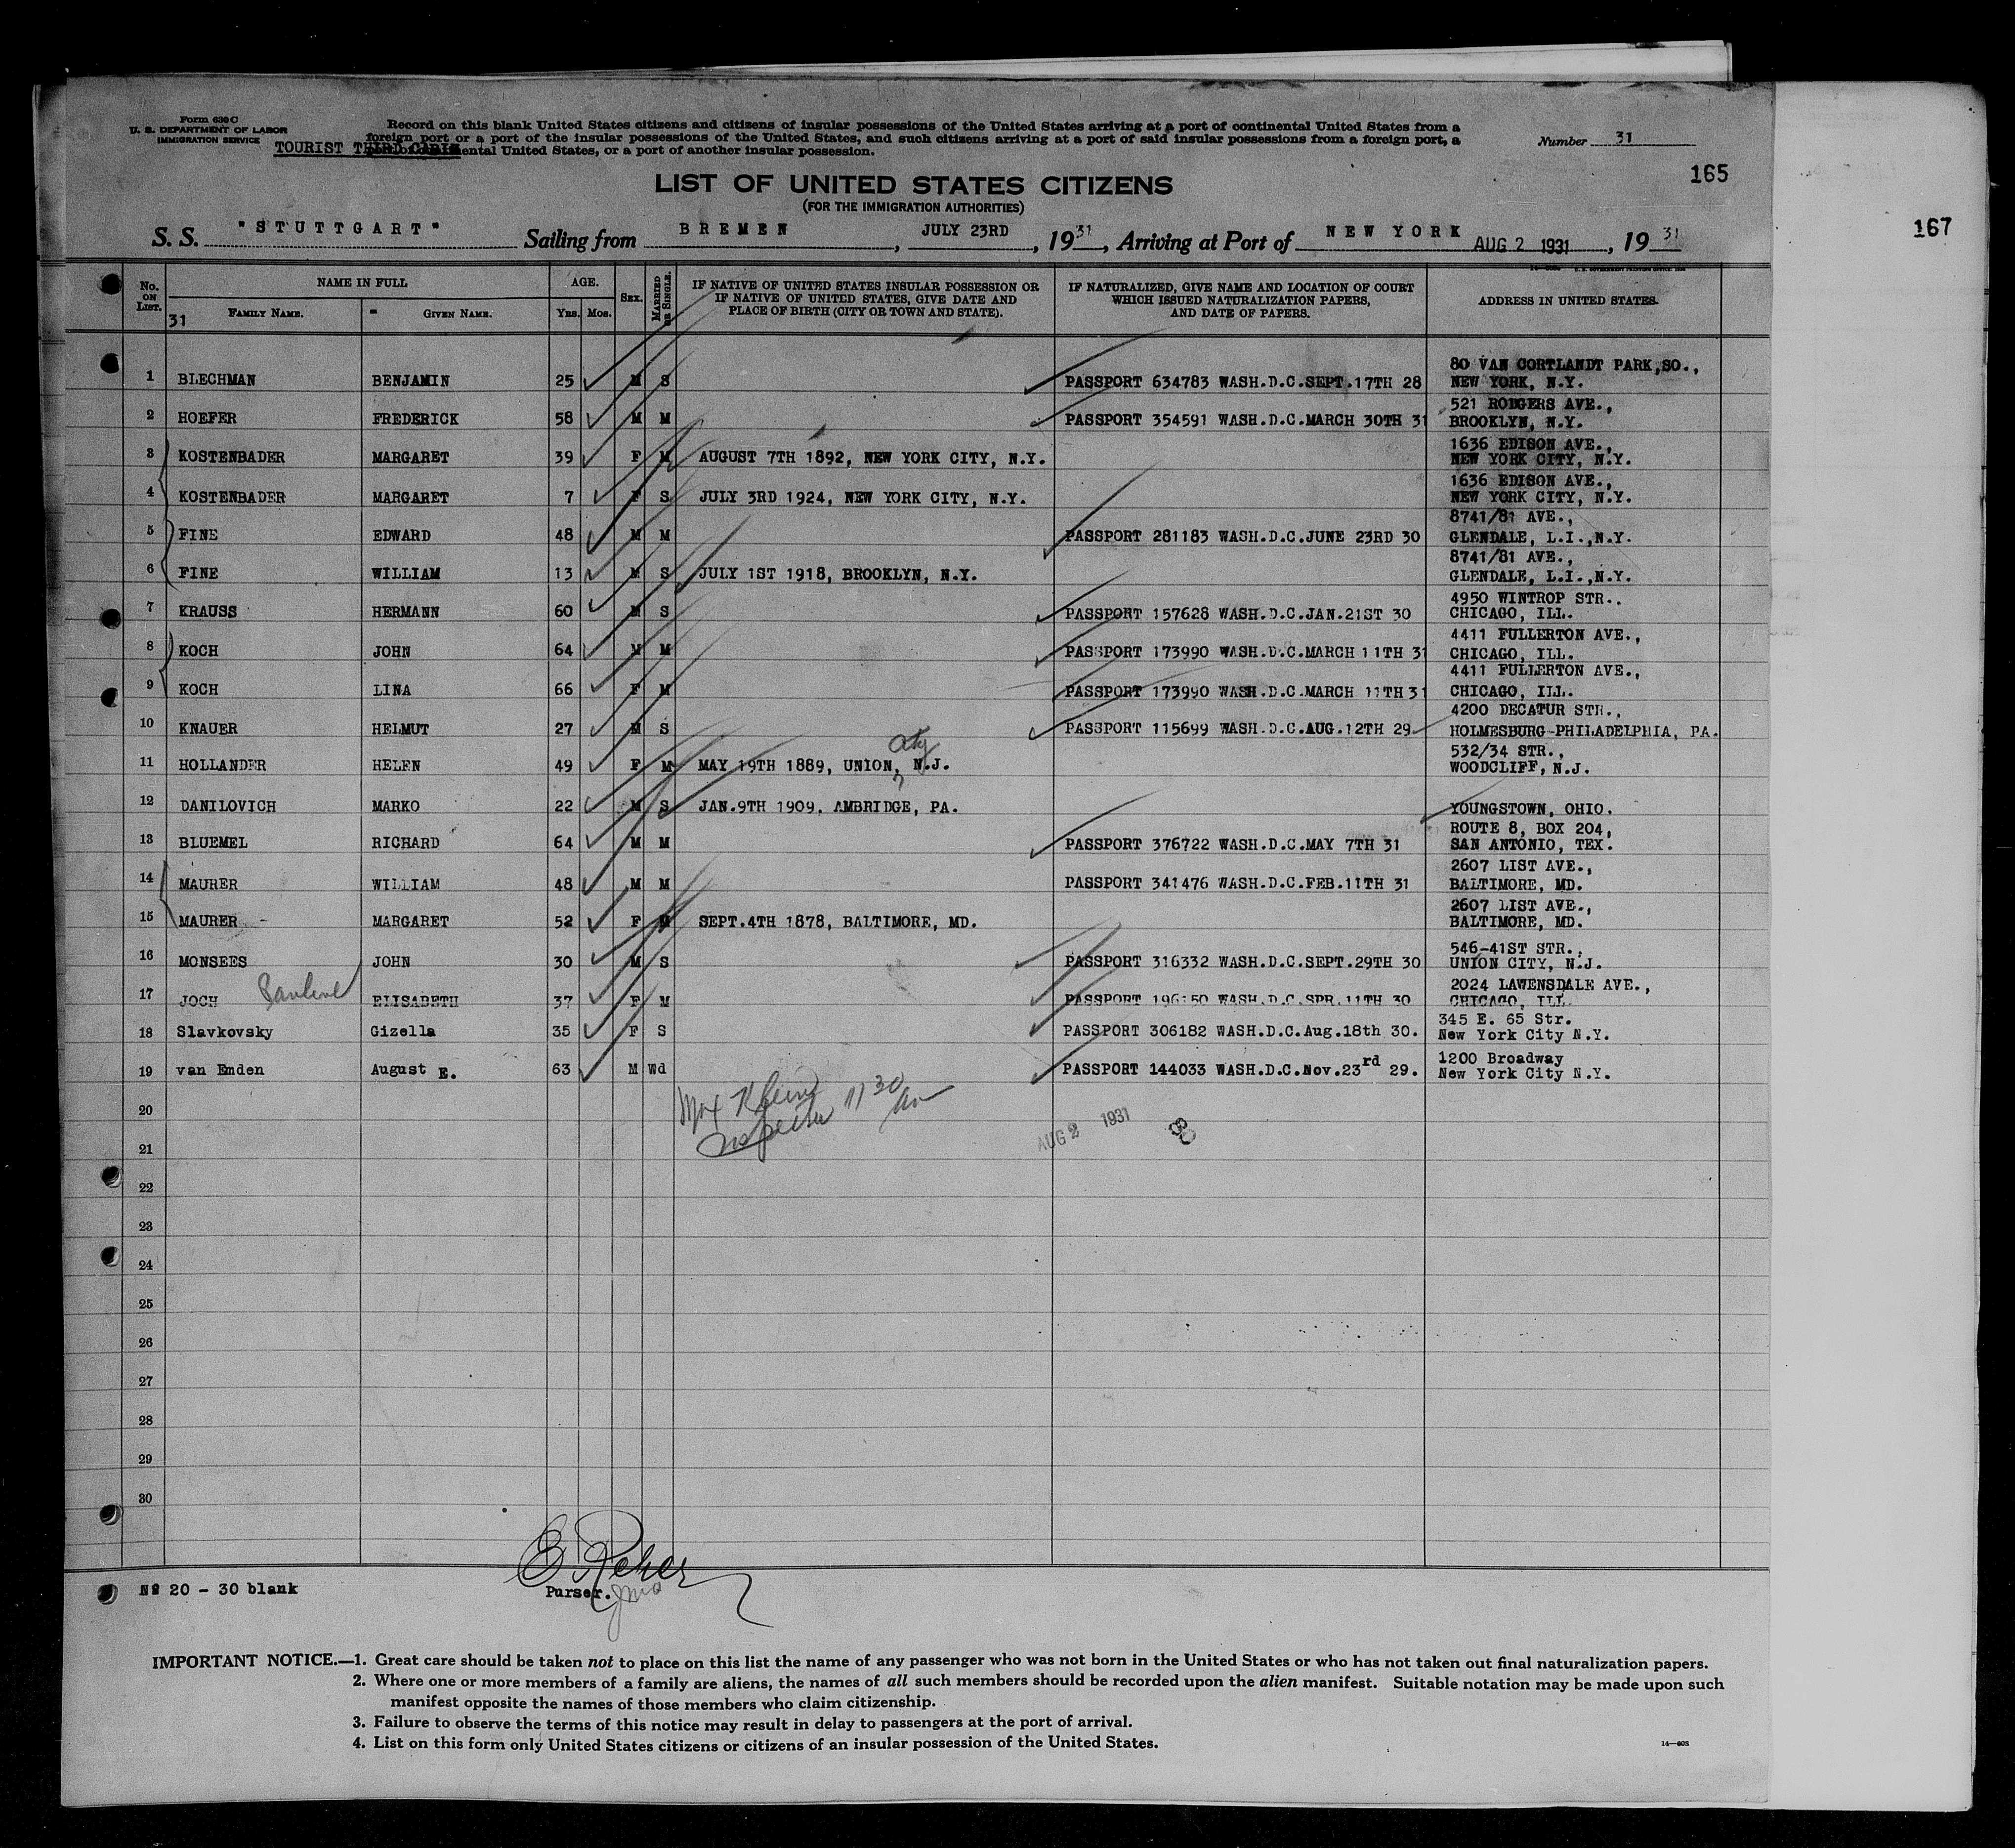 Form 630 C
U. S. DEPARTMENT OF LABOR
IMMIGRATION SERVICE
TOURIST THIRD CABIN
Record on this blank United States citizens and citizens of insular possessions of the United States arriving at a port of continental United States from a
foreign port or a port of the insular possessions of the United States, and such citizens arriving at a port of said insular possessions from a foreign port, a
mental United States, or a port of another insular possession.
Number 31
165
167
LIST OF UNITED STATES CITIZENS
(FOR THE IMMIGRATION AUTHORITIES)
S. S. "STUTTGART" Sailing from BREMEN, JULY 23RD, 1931, Arriving at Port of NEW YORK AUG 2 1931, 1931
No. ON LIST. NAME IN FULL AGE. SEX. MARRIED OR SINGLE. IF NATIVE OF UNITED STATES INSULAR POSSESSION OR IF NATIVE OF UNITED STATES, GIVE DATE AND PLACE OF BIRTH (CITY OR TOWN AND STATE). IF NATURALIZED, GIVE NAME AND LOCATION OF COURT WHICH ISSUED NATURALIZATION PAPERS, AND DATE OF PAPERS. ADDRESS IN UNITED STATES.
31 FAMILY NAME. - GIVEN NAME. YRS. MOS.
1 BLECHMAN BENJAMIN 25 M S PASSPORT 634783 WASH.D.C.SEPT.17TH 28 80 VAN CORTLANDT PARK,SO., NEW YORK, N.Y.
2 HOEFER FREDERICK 58 M M PASSPORT 354591 WASH.D.C.MARCH 30TH 31 521 RODGERS AVE., BROOKLYN, N.Y.
3 KOSTENBADER MARGARET 39 F M AUGUST 7TH 1892, NEW YORK CITY, N.Y. 1636 EDISON AVE., NEW YORK CITY, N.Y.
4 KOSTENBADER MARGARET 7 F S JULY 3RD 1924, NEW YORK CITY, N.Y. 1636 EDISON AVE., NEW YORK CITY, N.Y.
5 FINE EDWARD 48 M M PASSPORT 281183 WASH.D.C.JUNE 23RD 30 8741/81 AVE., GLENDALE, L.I.,N.Y.
6 FINE WILLIAM 13 M S JULY 1ST 1918, BROOKLYN, N.Y. 8741/81 AVE., GLENDALE, L.I.,N.Y.
7 KRAUSS HERMANN 60 M S PASSPORT 157628 WASH.D.C.JAN.21ST 30 4950 WINTROP STR.. CHICAGO, ILL.
8 KOCH JOHN 64 M M PASSPORT 173990 WASH.D.C.MARCH 11TH 31 4411 FULLERTON AVE., CHICAGO, ILL.
9 KOCH LINA 66 F M PASSPORT 173990 WASH.D.C.MARCH 11TH 31 4411 FULLERTON AVE., CHICAGO, ILL.
10 KNAUER HELMUT 27 M S PASSPORT 115699 WASH.D.C.AUG.12TH 29 4200 DECATUR STR., HOLMESBURG-PHILADELPHIA, PA.
11 HOLLANDER HELEN 49 F M MAY 19TH 1889, UNION, N.J. 532/34 STR., WOODCLIFF, N.J.
12 DANILOVICH MARKO 22 M S JAN.9TH 1909, AMBRIDGE, PA. YOUNGSTOWN, OHIO.
13 BLUEMEL RICHARD 64 M M PASSPORT 376722 WASH.D.C.MAY 7TH 31 ROUTE 8, BOX 204, SAN ANTONIO, TEX.
14 MAURER WILLIAM 48 M M PASSPORT 341476 WASH.D.C.FEB.11TH 31 2607 LIST AVE., BALTIMORE, MD.
15 MAURER - MARGARET 52 F M SEPT.4TH 1878, BALTIMORE, MD. 2607 LIST AVE., BALTIMORE, MD.
16 MONSEES JOHN 30 M S PASSPORT 316332 WASH.D.C.SEPT.29TH 30 546-41ST STR., UNION CITY, N.J.
17 JOCH Pauline ELISABETH 37 F M PASSPORT 196150 WASH.D.C.SPR.11TH 30 2024 LAWENSDALE AVE., CHICAGO, ILL.
18 Slavkovsky Gizella 35 F S PASSPORT 306182 WASH.D.C.Aug.18th 30. 345 E. 65 Str. New York City N.Y.
19 van Emden August E. 63 M Wd PASSPORT 144033 WASH.D.C.Nov.23rd 29. 1200 Broadway New York City N.Y.
20 Max 11 30 am
Inspector AUG 2 1931
21
22
23
24
25
26
27
28
29
30
Nº 20 - 30 blank
Purser.
IMPORTANT NOTICE.—1. Great care should be taken not to place on this list the name of any passenger who was not born in the United States or who has not taken out final naturalization papers.
2. Where one or more members of a family are aliens, the names of all such members should be recorded upon the alien manifest. Suitable notation may be made upon such
manifest opposite the names of those members who claim citizenship.
3. Failure to observe the terms of this notice may result in delay to passengers at the port of arrival.
4. List on this form only United States citizens or citizens of an insular possession of the United States.